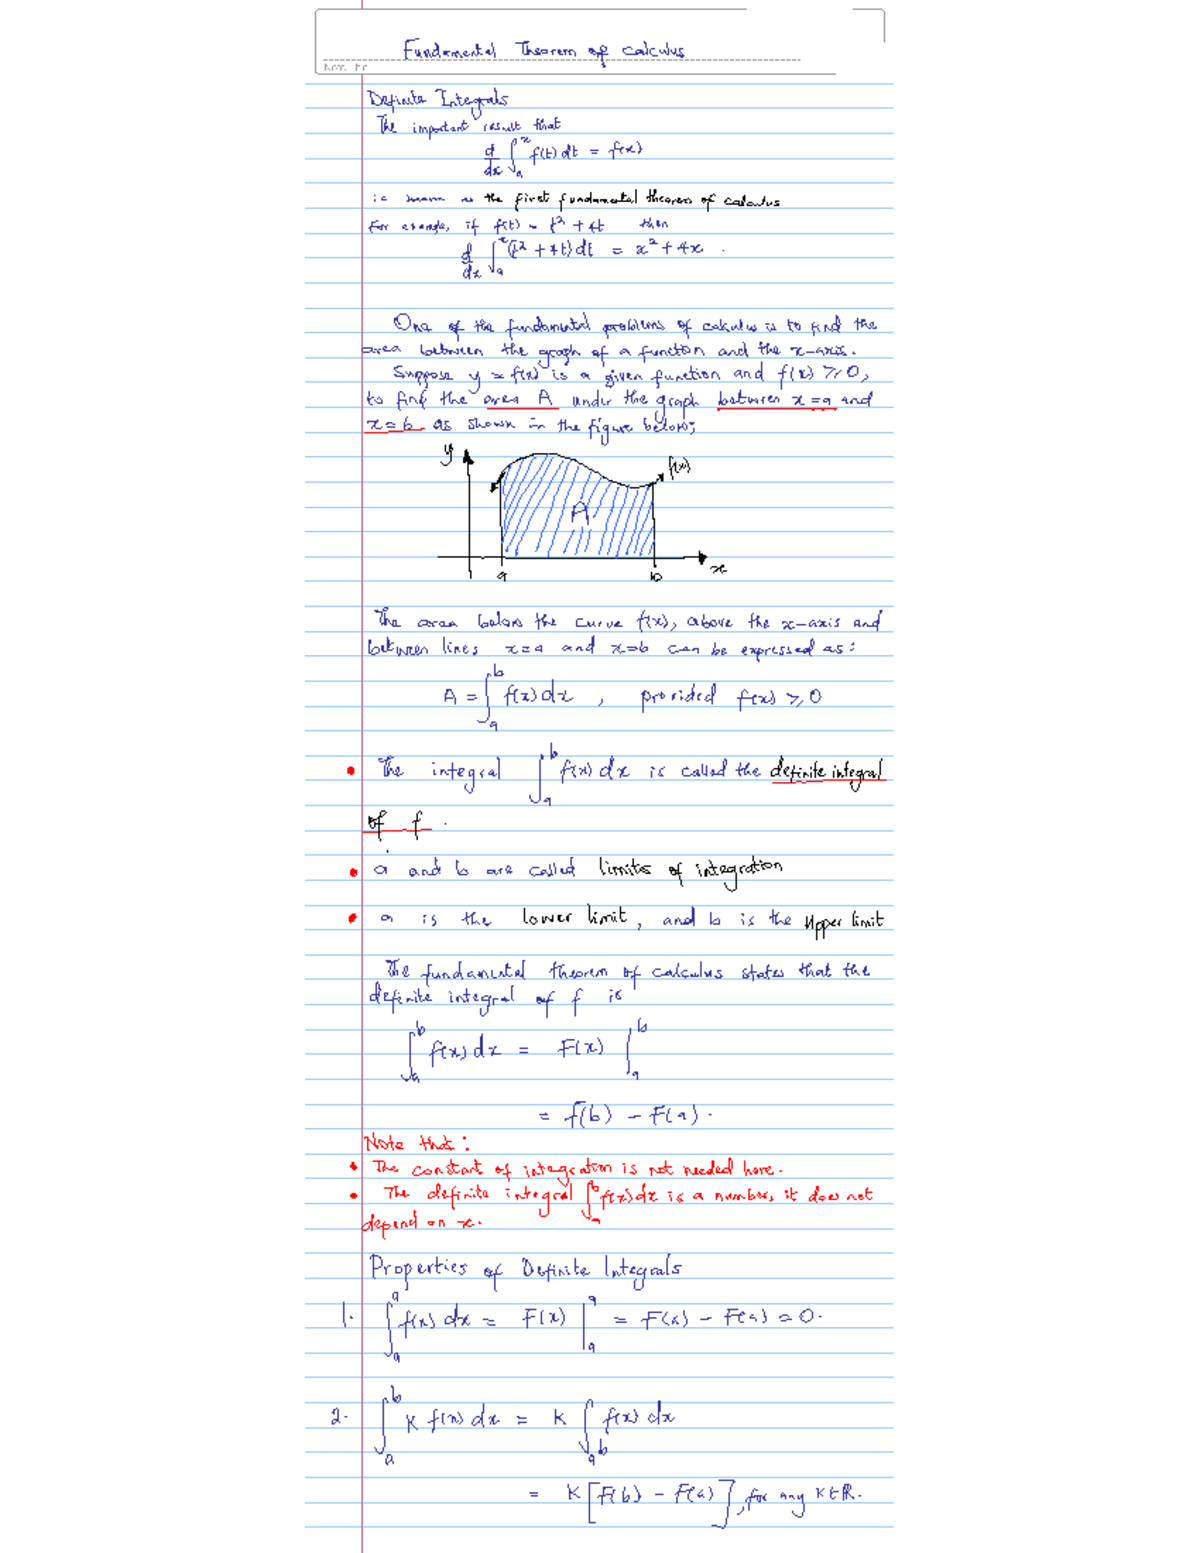 Fundamental Theorem of Calculus
Definite Integrals
The important result that
d/dx ∫_a^x f(t) dt = f(x)
is known as the first fundamental theorem of calculus
For example, if f(t) = t² + 4t then
d/dx ∫_a^x (t² + 4t) dt = x² + 4x .
One of the fundamental problems of calculus is to find the
area between the graph of a function and the x-axis.
Suppose y = f(x) is a given function and f(x) ≥ 0,
to find the area A under the graph between x = a and
x = b as shown in the figure below;
y
f(x)
A
a b x
The area below the curve f(x), above the x-axis and
between lines x=a and x=b can be expressed as:
A = ∫_a^b f(x) dx , provided f(x) ≥ 0
• The integral ∫_a^b f(x) dx is called the definite integral
of f .
• a and b are called limits of integration
• a is the lower limit, and b is the upper limit
The fundamental theorem of calculus states that the
definite integral of f is
∫_a^b f(x) dx = F(x) |_a^b
= f(b) - F(a).
Note that:
• The constant of integration is not needed here.
• The definite integral ∫_a^b f(x) dx is a number, it does not
depend on x.
Properties of Definite Integrals
1. ∫_a^a f(x) dx = F(x) |_a^a = F(a) - F(a) = 0.
2. ∫_a^b K f(x) dx = K ∫_a^b f(x) dx
= K [F(b) - F(a)], for any K ∈ ℝ.